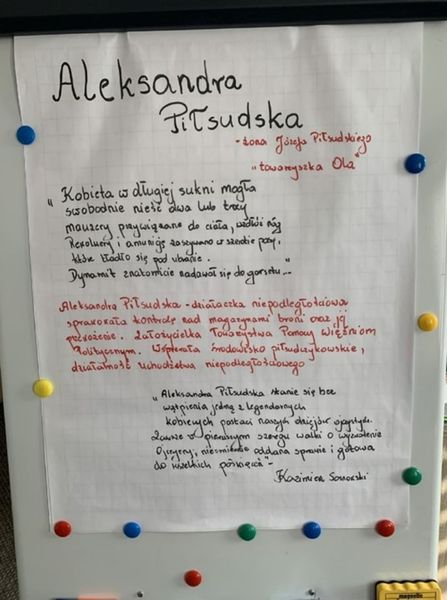 Aleksandra
Piłsudska
- żona Józefa Piłsudskiego
"towarzyszka Ola"
„Kobieta w długiej sukni mogła
swobodnie nieść dwa lub trzy
mauzery przywiązane do ciała, wzdłuż nóg
Rewolwery i amunicję zaszywano w szerokie pasy,
które kładło się pod ubranie.
Dynamit znakomicie nadawał się do gorsetu..."
Aleksandra Piłsudska - działaczka niepodległościowa
sprawowała kontrolę nad magazynami broni oraz ją
Założycielka Towarzystwa Pomocy Więźniom
Politycznym. Wspierała środowisko piłsudczykowskie,
działalność uchodźstwa niepodległościowego
„Aleksandra Piłsudska stanie się bez
wątpienia jedną z legendarnych
kobiecych postaci naszych dziejów ojczystych.
Zawsze w pierwszym szeregu walki o wyzwolenie
Ojczyzny, niezmiennie oddana sprawie i gotowa
do wszelkich poświęceń" -
Kazimierz Sosnowski
magnetic